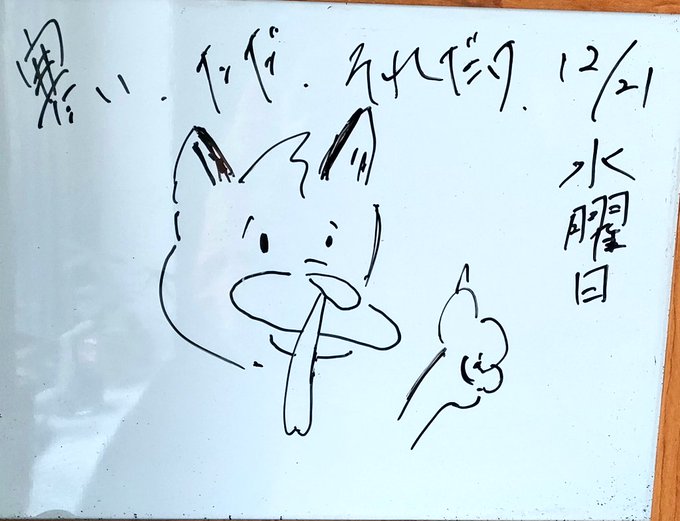 寒い．ただ．それだけ．
12/21
水曜日